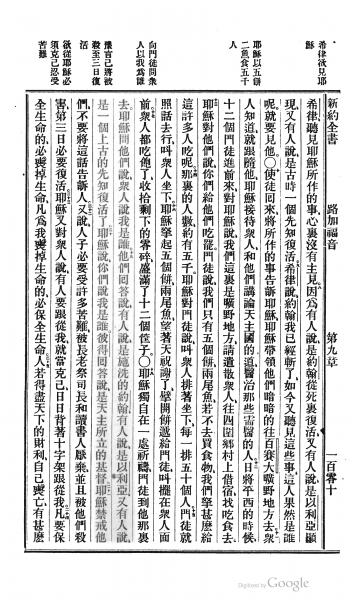 新約全書　路加福音　第九章　一百零十
希律汲見耶
耶穌以五餅
二魚食五千
人
向門徒問衆
人以我爲誰
豫言己將被
殺至三日復
活
欲從耶穌必
須克己忍受
苦難
希律聽見耶穌所作的事心裏沒有主見因爲有人說是約翰從死裏復活又有人說是以利亞顯
現又有人說是古時一個先知復活希律說約翰我已經斬了如今又聽見這些事這人果然是誰
呢就要見他〇使徒回來將所作的事告訴耶穌耶穌帶領他們暗暗的往百賽大曠野地方去衆
人知道就跟隨他耶穌接待衆人和他們講論天主國的道醫治那些需醫的人日將平西的時候
十二個門徒進前來對耶穌說我們這裏是曠野地方請遣散衆人往四圍鄉村上借宿找吃食去
耶穌對他們說你們給他們吃罷門徒說我們只有五個餅兩尾魚若不去買食物我們拏甚麽給
這許多人吃呢那裏的人數約有五千耶穌對門徒說叫衆人排著坐下每一排五十個人門徒就
照話去行叫衆人坐下耶穌拏起五個餅兩尾魚望著天祝謝了擘開餅遞給門徒叫擺在衆人面
前衆人都吃飽了收拾剩下的零碎盛滿了十二個筐子〇耶穌獨自在一處祈禱門徒到他那裏
去耶穌問他們說衆人說我是誰他們回答說有人說是施洗的約翰有人說是以利亞又有人說
是一個上古的先知復活了耶穌說你們說我是誰彼得回答說是天主所立的基督耶穌禁戒他
們不要將這話告訴人又說人子必要受許多苦難被長老祭司長和讀書人厭棄並且被他們殺
害第三日必要復活耶穌又對衆人說有人要跟從我就當克己日日背著十字架跟從我凡要保
全生命的必喪掉生命凡爲我喪掉生命的必保全生命人若得盡天下的財利自己喪亡有甚麽
Digitized by Google